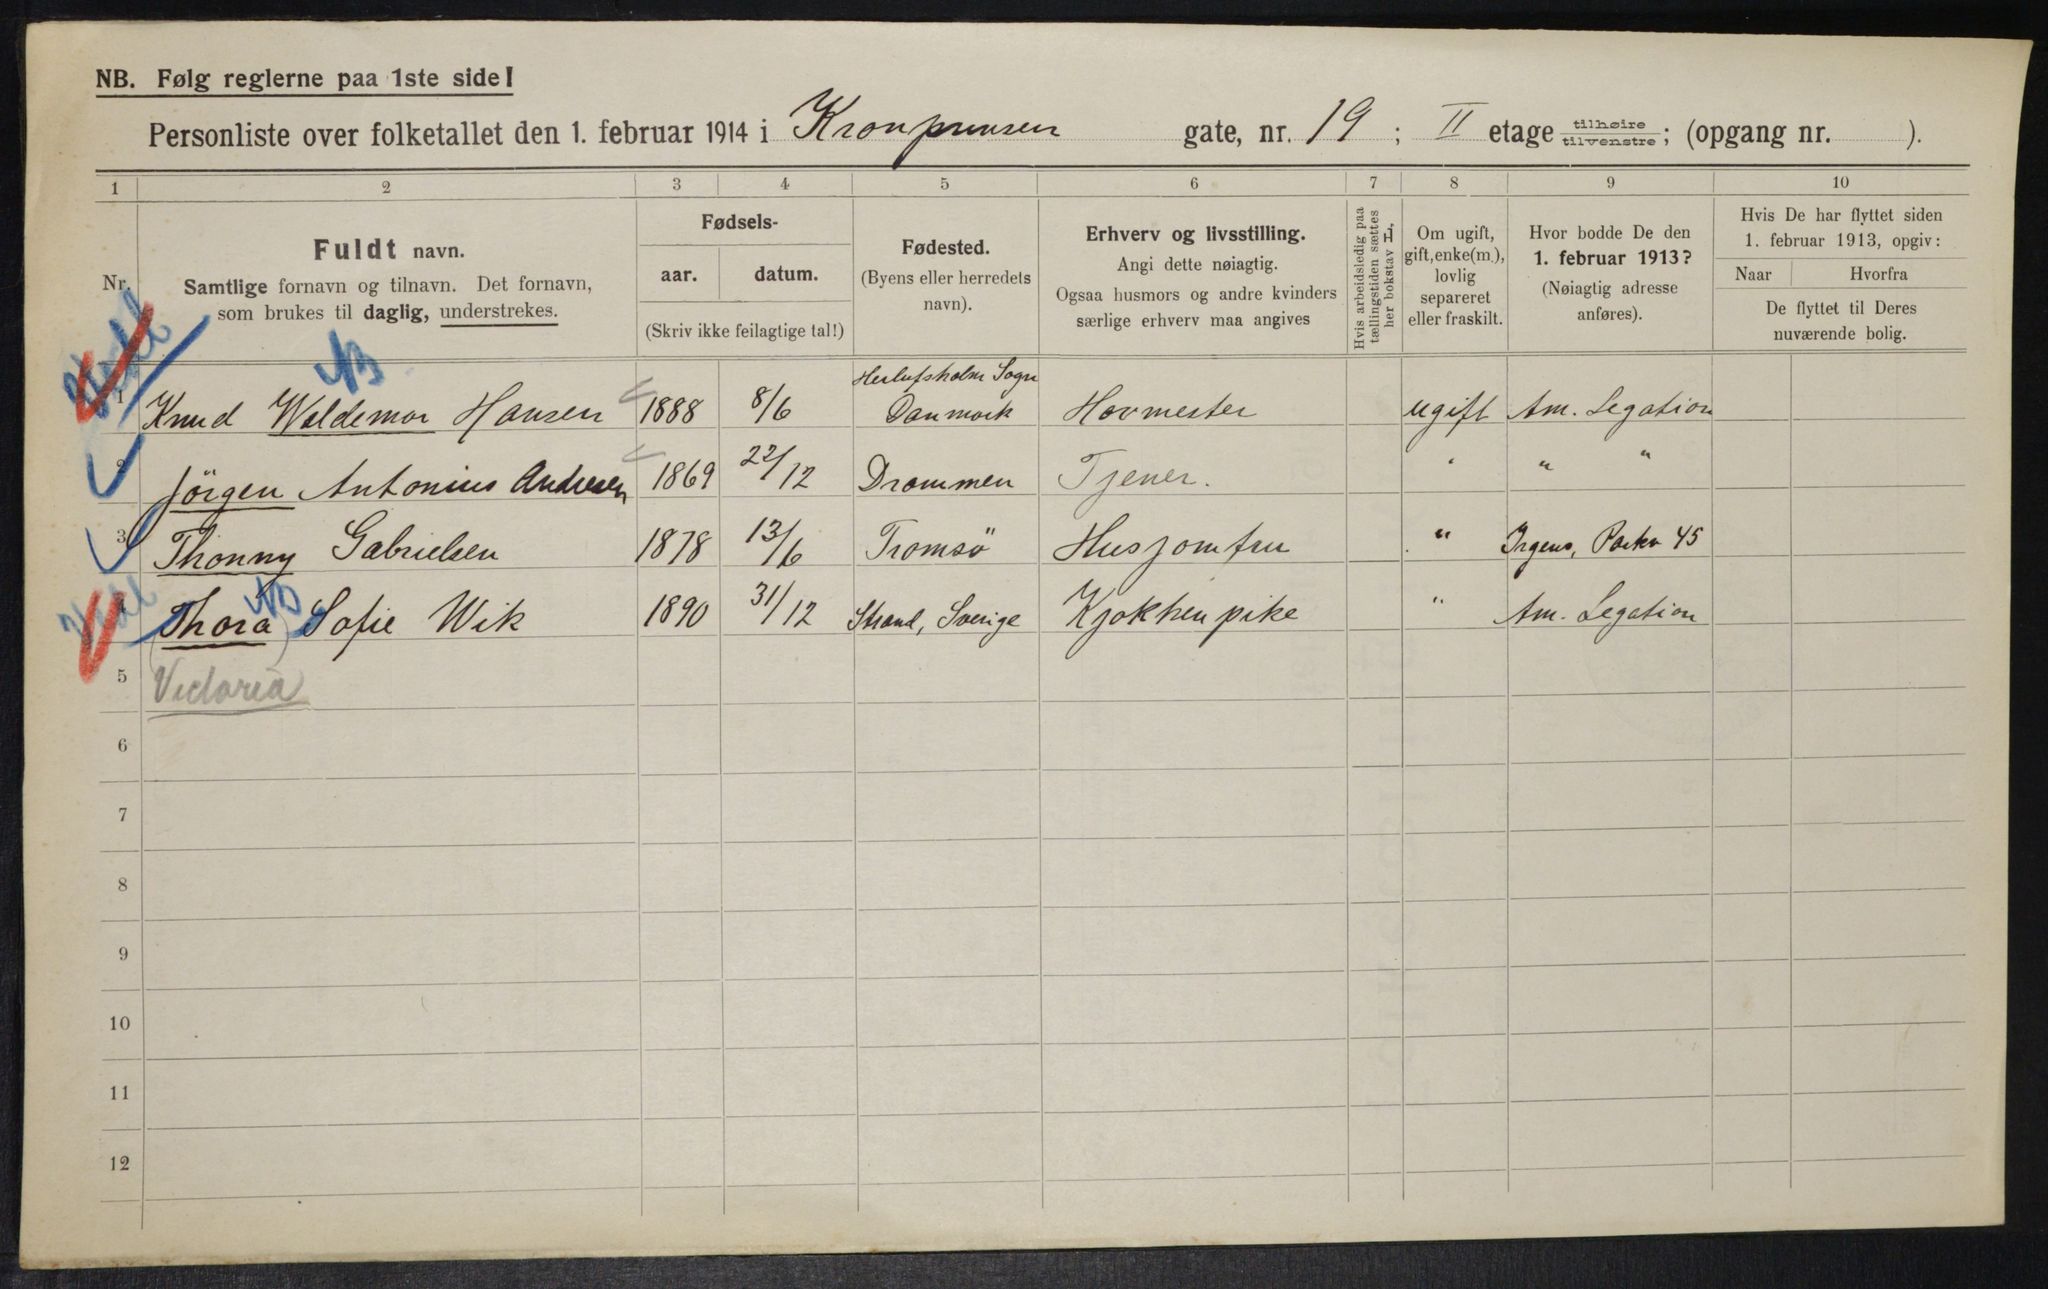 NB. Følg reglerne paa 1ste side!
Personliste over folketallet den 1. februar 1914 i Kronprinsen gate, nr. 19; II etage tilhøire tilvenstre; (opgang nr. ).
1 2 3 4 5 6 7 8 9 10
Nr.
Fuldt navn.
Samtlige fornavn og tilnavn. Det fornavn,
som brukes til daglig, understrekes.
Fødsels-
aar. datum.
(Skriv ikke feilagtige tal!)
Fødested.
(Byens eller herredets
navn).
Erhverv og livsstilling.
Angi dette nøiagtig.
Ogsaa husmors og andre kvinders
særlige erhverv maa angives
Hvis arbeidsledig paa
tællingstiden sættes
her bokstav L.
Om ugift,
gift, enke(m.),
lovlig
separeret
eller fraskilt.
Hvor bodde De den
1. februar 1913?
(Nøiagtig adresse
anføres).
Hvis De har flyttet siden
1. februar 1913, opgiv:
Naar Hvorfra
De flyttet til Deres
nuværende bolig.
NB
Herlufsholm Sogn
1 Knud Waldemar Hansen 1888 8/6 Danmark Hovmester ugift Am. Legation
2 Jörgen Antonius Andresen 1869 22/12 Drammen Tjener. " " "
3 Thonny Gabrielsen 1878 13/6 Tromsö Husjomfru " Irgens, Parkv 45
NB
4 (Thora) Sofie Wik 1890 31/12 Strand, Sverige Kjøkkenpike " Am. Legation
5 Victoria
6
7
8
9
10
11
12